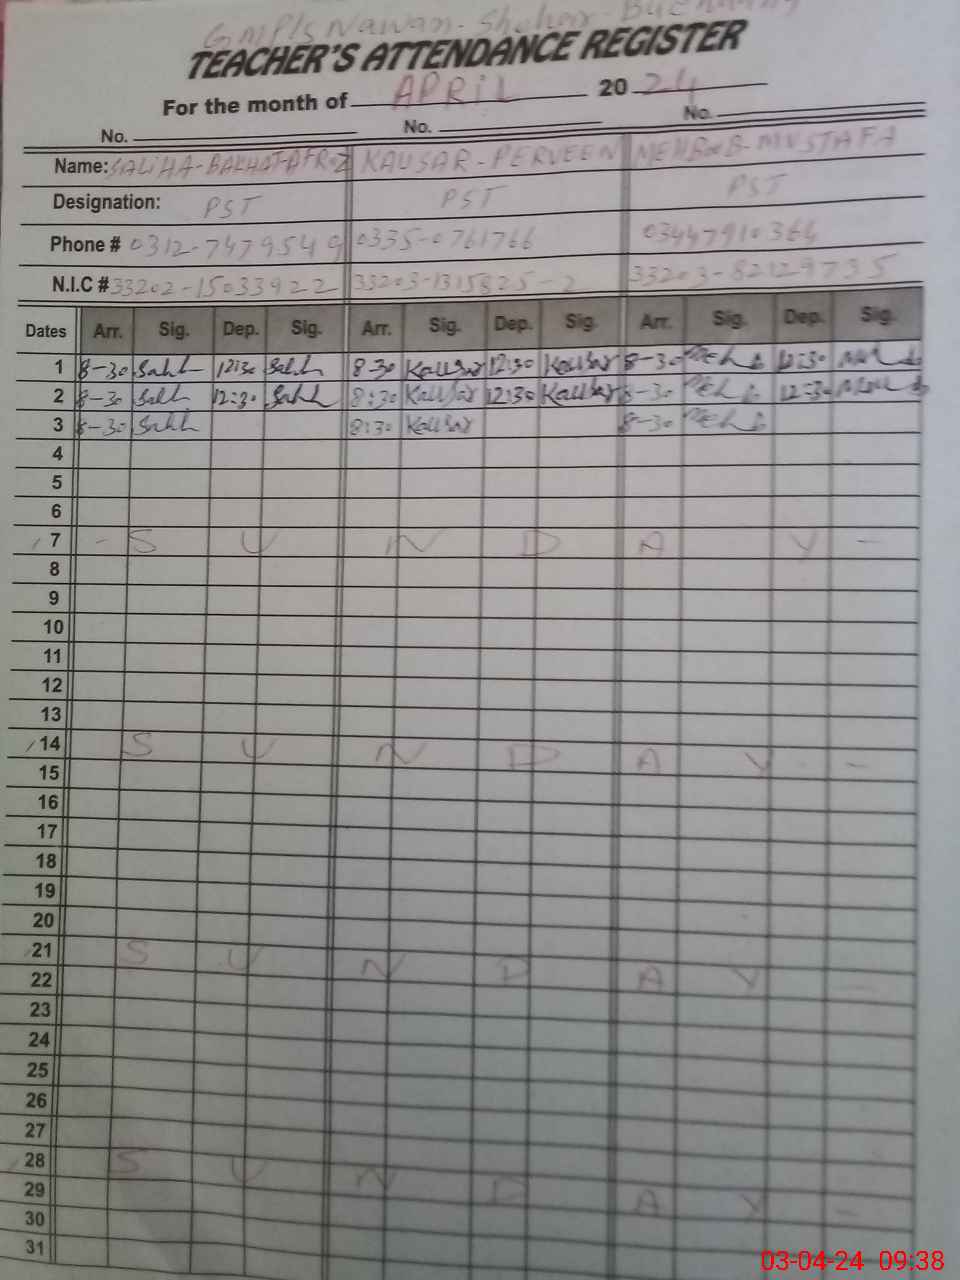 GMP/S Nawan-Shehar-Buchiana
TEACHER'S ATTENDANCE REGISTER
For the month of APRIL 2024
No. No. No.
Name: SALIHA-BAKHAT-AFROZ KAUSAR-PERVEEN MEHBOOB-MUSTAFA
Designation: PST PST PST
Phone # 0312-7479549 0335-0761766 03447910364
N.I.C # 33202-15033922 33203-1315825-2 33203-82129735
Dates Arr. Sig. Dep. Sig. Arr. Sig. Dep. Sig. Arr. Sig. Dep. Sig.
1 8-30 12:30 8:30 Kausar 12:30 Kausar 8-30 12:30
2 8-30 12:30 8:30 Kausar 12:30 Kausar 8-30 12:30
3 8-30 8:30 Kausar 8-30
4
5
6
7 - S U N D A Y -
8
9
10
11
12
13
14 S U N D A Y -
15
16
17
18
19
20
21 S U N D A Y -
22
23
24
25
26
27
28 S U N D A Y -
29
30
31
03-04-24 09:38